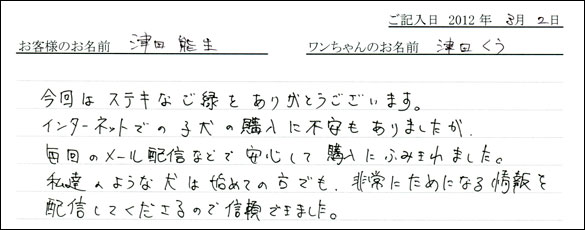 ご記入日 2012 年 3月 2日
お客様のお名前 津田 能生 ワンちゃんのお名前 津田 くう
今回は ステキな ご縁を ありがとうございます。
インターネットでの 子犬の購入に不安もありましたが、
毎回のメール配信などで安心して購入にふみきれました。
私達のような犬は始めての方でも、非常にためになる情報を
配信してくださるので信頼できました。